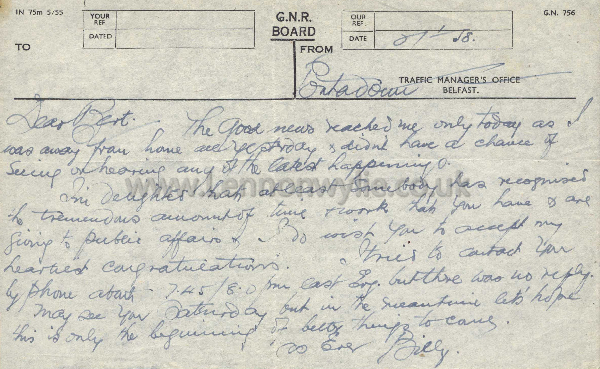 IN 75m 5/55
YOUR REF.
DATED
G.N.R. BOARD
OUR REF.
DATE 2/1/58.
G.N. 756
TO
FROM
Portadown
TRAFFIC MANAGER'S OFFICE
BELFAST.
Dear Bert.
The Good news reached me only today as I
was away from home all yesterday & didnt have a chance of
seeing or hearing any of the latest happenings.
Im Delighted that at last somebody has recognised
the tremendous amount of time & work that you have & are
giving to public affairs & I do wish you to accept my
heartiest congratulations. I tried to contact you
by phone about 7.45/8.0 pm last Evg. but there was no reply.
May see you Saturday but in the meantime let's hope
this is only the beginning of better things to come.
as Ever Billy.